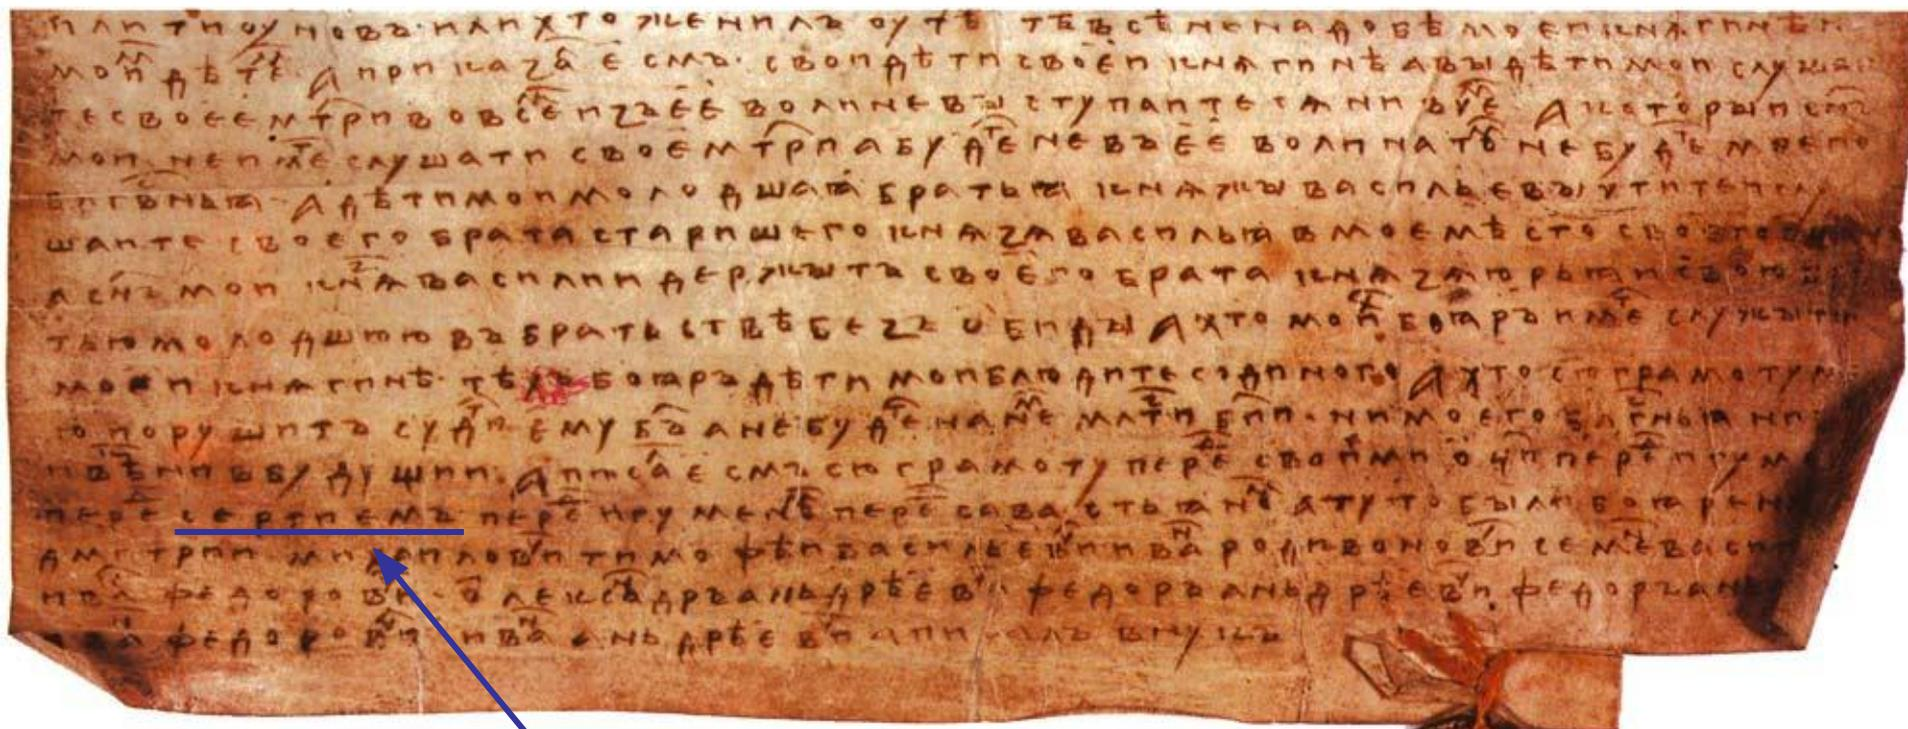 или тиоуновъ или хто женилъ оу тѣ тѣ всѣ не надобѣ моеи княгинѣ и
мои дѣте А приказа есмь свои дѣти своеи княгинѣ а вы дѣти мои слушаи
те своее мтри во все изъ ее воли не выступаитеся ни въ че А которыи снъ
мои не име слушати своее мтри а буде не въ ее воли на то не буде моего
блгвнья А дѣти мои молодшая братья княжы васильевы чтите и слу
шаите своего брата старишего князя василья в мое мѣсто своего
а снъ мои кня василии держыть своего брата князя юрья и свою бра
тью молодшюю въ братьствѣ безъ обиды А хто мои бояръ име служыти
моеи княгинѣ тѣхъ бояръ дѣти мои блюдите с одиного А хто сю грамоту мо
ю порушить суди ему бъ а не буде на не млти бии ни моего блгвнья ни
вѣ ни в будущии А писа есмь сю грамоту пере своими оци пере игуме
пере сергиемъ пере игумено пере савастьяно А туто были бояре н
дмитрии михаилови тимофѣи васильеви ива родивонови семе васи
ива федорови олександръ аньдрѣеви федоръ аньдрѣеви федоръ ань
ива федорови ива аньдрѣеви а писалъ внукъ